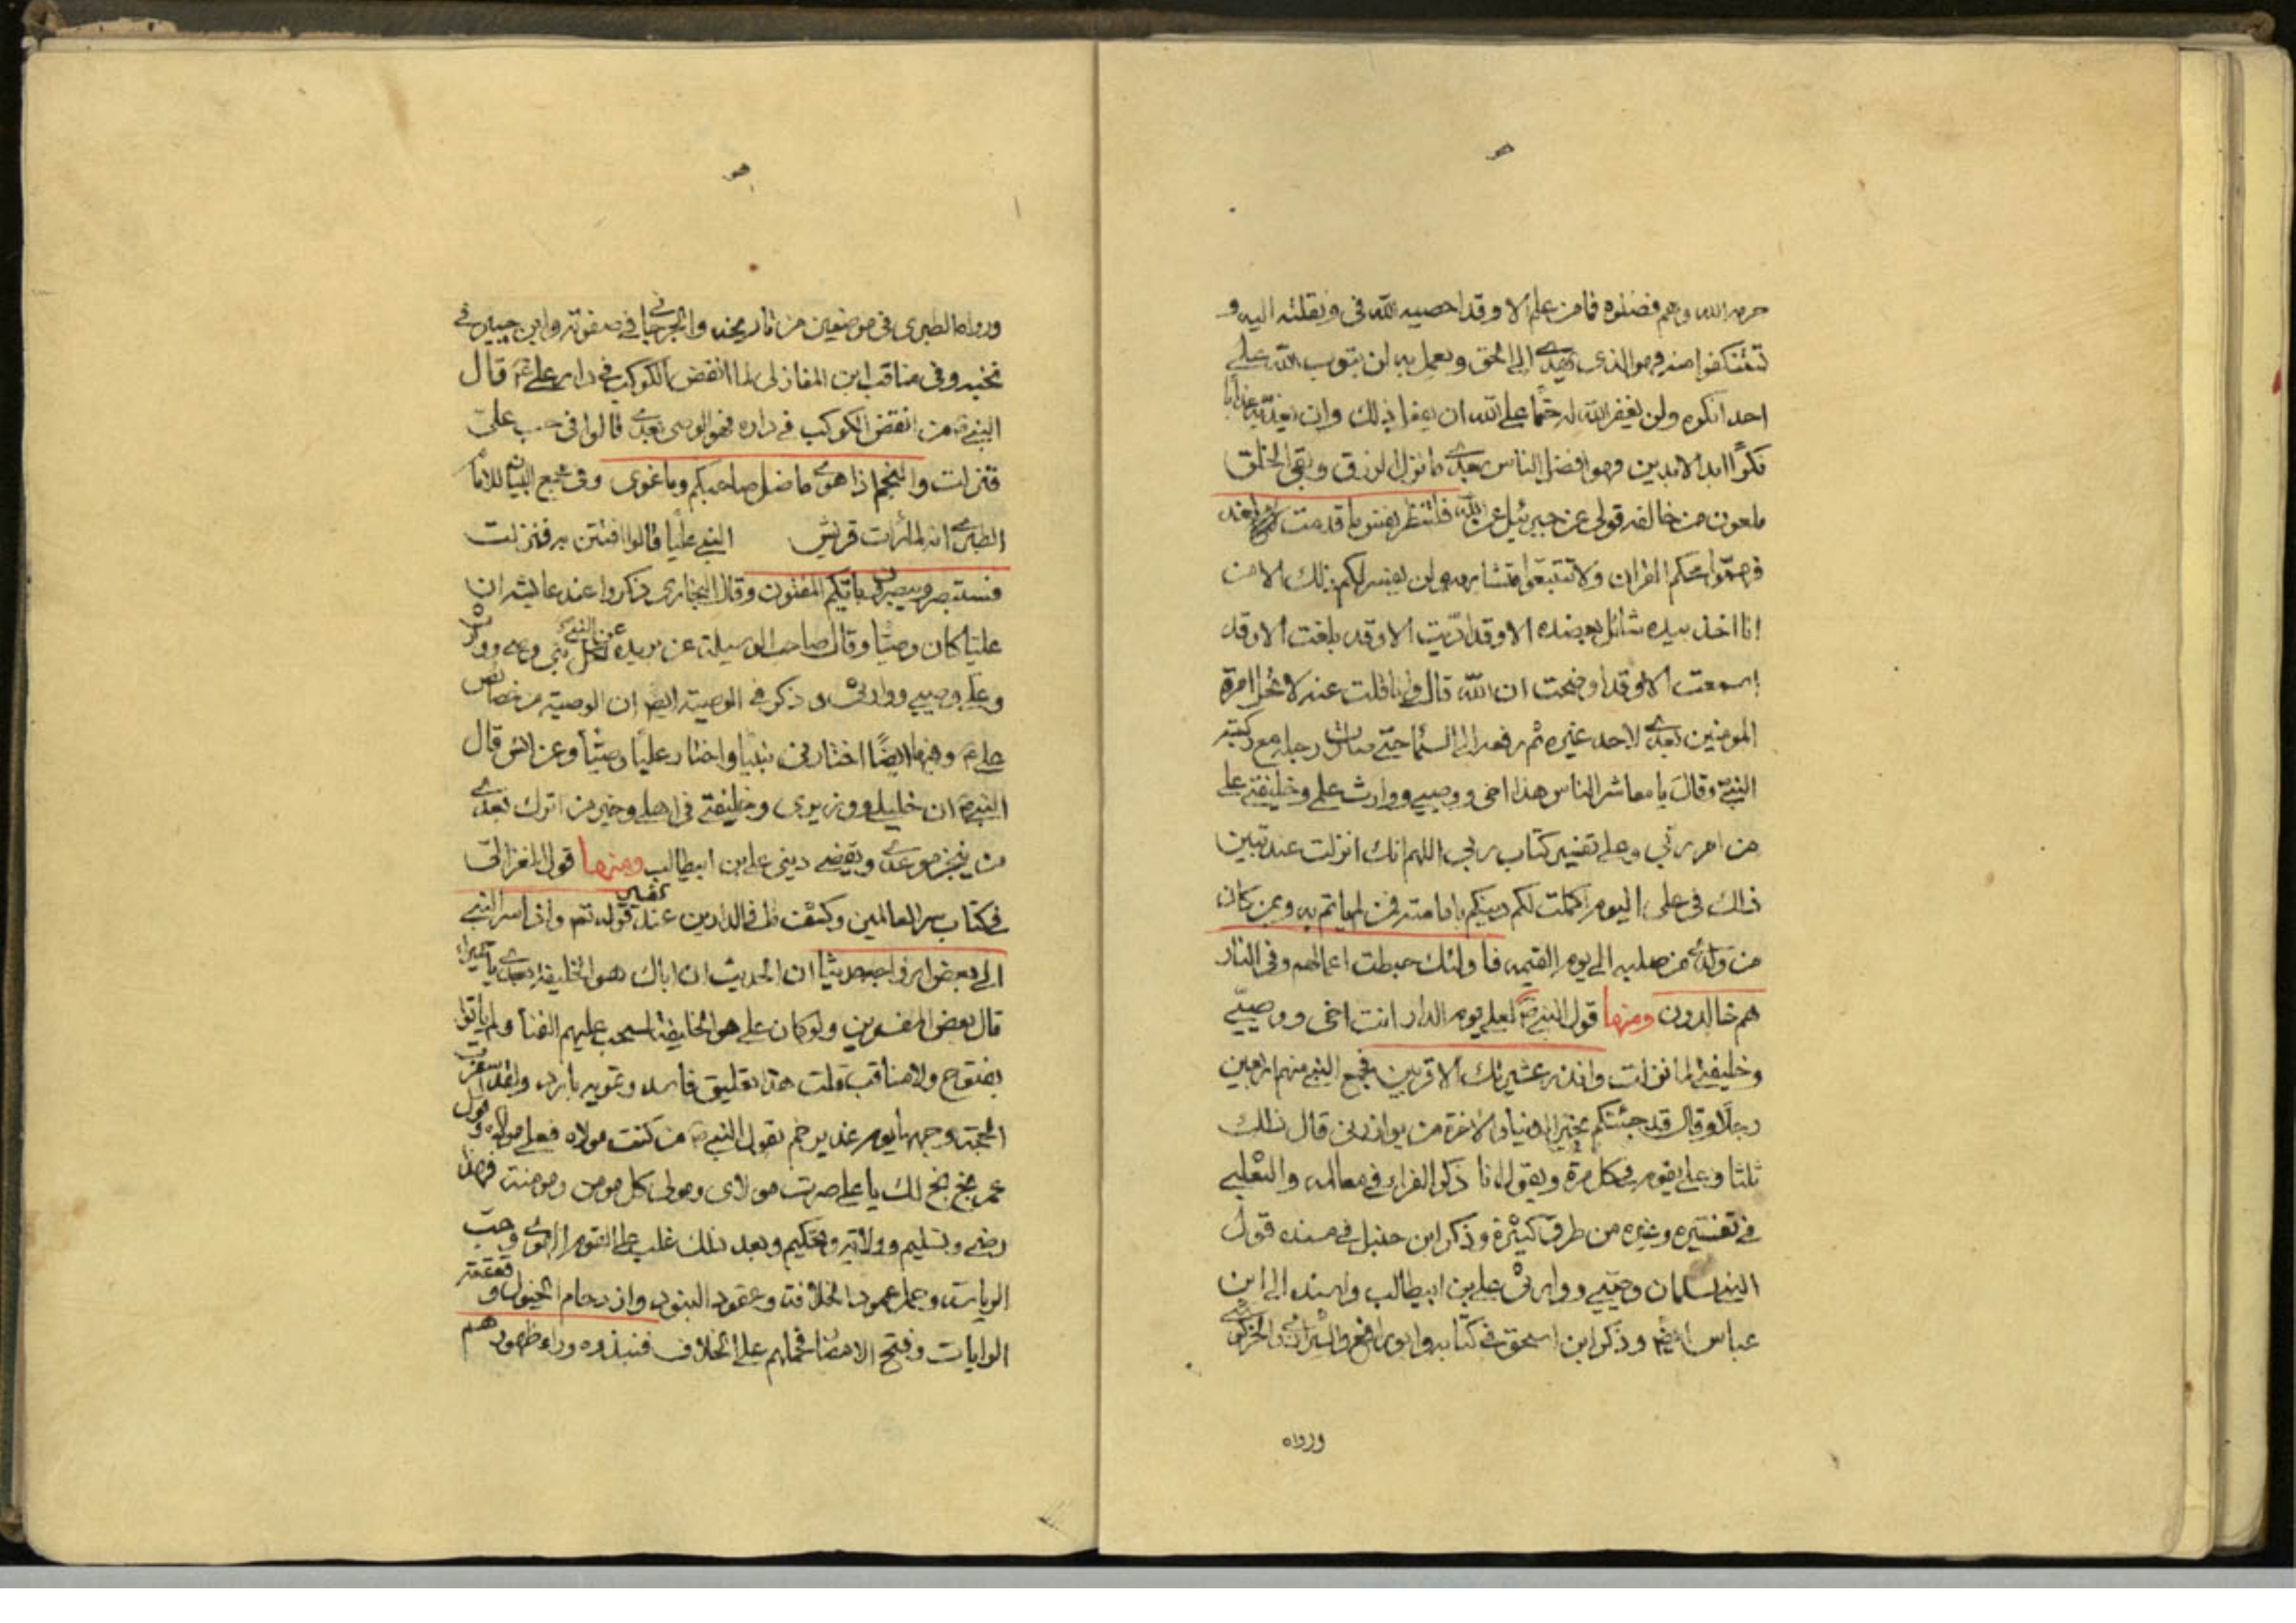 هو
حرمه الله وهم فضلوه فما من علم الا وقد احصيه الله فى ونقلته اليه و
تستنكفوا منه فهو الذى يهدى الى الحق ويعمل به لن يتوب الله على
احد انكره ولن يغفر الله له حتما على الله ان يفعل ذلك وان يعذبه عذابا
نكرا ابد الابدين فهو افضل الناس بعدى ما نزل الرزق وبقى الخلق
ملعون من خالفه قولى عن جبرئيل عن الله فلتنظر نفس ما قدمت لغد
فهموا محكم القران ولا تتبعوا متشابهه ولن يفسر لكم ذلك الا من
انا اخذ بيده شائل بعضده الا وقد اديت الا وقد بلغت الا وقد
اسمعت الا وقد اوضحت ان الله قال وانا قلت عنه لا تحل امرة
المومنين بعدى لاحد غيره ثم رفعه الى السماء حتى صارت رجله مع ركبة
النبى وقال يا معاشر الناس هذا اخى ووصيى ووارث علمى وخليفتى على
من امر ربى وعلى تفسير كتاب ربى اللهم انك انزلت عند تبين
ذلك فى على اليوم اكملت لكم دينكم بامامته فمن لم ياتم به وبمن كان
من ولدى من صلبه الى يوم القيمه فاولئك حبطت اعمالهم وفى النار
هم خالدون ومنها قول النبى لعلى يوم الدار انت اخى ووصيى
وخليفتى لما نزلت وانذر عشيرتك الاقربين فجمع النبى منهم اربعين
رجلا وقال قد جئتكم بخير الدنيا والاخرة من يوازرنى قال ذلك
ثلثا وعلى يقوم فى كل مرة ويقول انا ذكر الفراء فى معالمه والثعلبى
فى تفسيره وغيره من طرق كثيرة وذكر ابن حنبل فى مسنده قول
النبى لسلمان وصيى ووارثى على بن ابيطالب واسنده الى ابن
عباس ايضا وذكر ابن اسحق فى كتابه وابو رافع والشيرازى والخركوشى
ورواه
هو
ورواه الطبرى فى موضعين من تاريخه والجرجانى فى صفوته وابن جبير فى
نخبه وفى مناقب ابن المغازلى لما انقض الكوكب فى دار على قال
النبى من انقض الكوكب فى داره فهو الوصى بعدى قالوا فى حب على
فنزلت والنجم اذا هوى ما ضل صاحبكم وما غوى وفى مجمع البيان للامام
الطبرسى انه لما رات قريش النبى عليا قالوا افتتن به فنزلت
فستبصر ويبصرون بايكم المفتون وقال البخارى ذكروا عند عايشه ان
عليا كان وصيا وقال صاحب الوسيلة عن بريده عن النبى لكل نبى وصى ووارث
وعلى وصيى ووارثى وذكر فى الوصية ايضا ان الوصية من خصائص
على وفيها ايضا اختارنى نبيا واختار عليا وصيا وعن انس قال
النبى ان خليلى ووزيرى وخليفتى فى اهلى وخير من اترك بعدى
من ينجز موعدى ويقضى دينى على بن ابيطالب ومنها قول الغزالى
فى كتاب سر العالمين وكشف ما فى الدارين عند تفسير قوله تعم واذ اسر النبى
الى بعض ازواجه حديثا ان الحديث ان اباك هو الخليفة بعدى يا حميراء
قال بعض المفسرين ولو كان على هو الخليفة لسحب عليهم الفنا ولم ياتوا
بفتوح ولا مناقب قلت هذا تعليق فاسد وتمويه بارد ولقد اسفرت
الحجة وجهها يوم غدير خم بقول النبى من كنت مولاه فعلى مولاه وقول
عمر بخ بخ لك يا على صرت مولاى ومولى كل مومن ومومنة فهذا
رضى وتسليم وولاية وتحكيم وبعد ذلك غلب على القوم الهوى وحب
الرياسة وحمل عمود الخلافة وعقود البنود وازدحام الخيول و قعقعة
الرايات وفتح الامصار فحملهم على الخلاف فنبذوه وراء ظهورهم